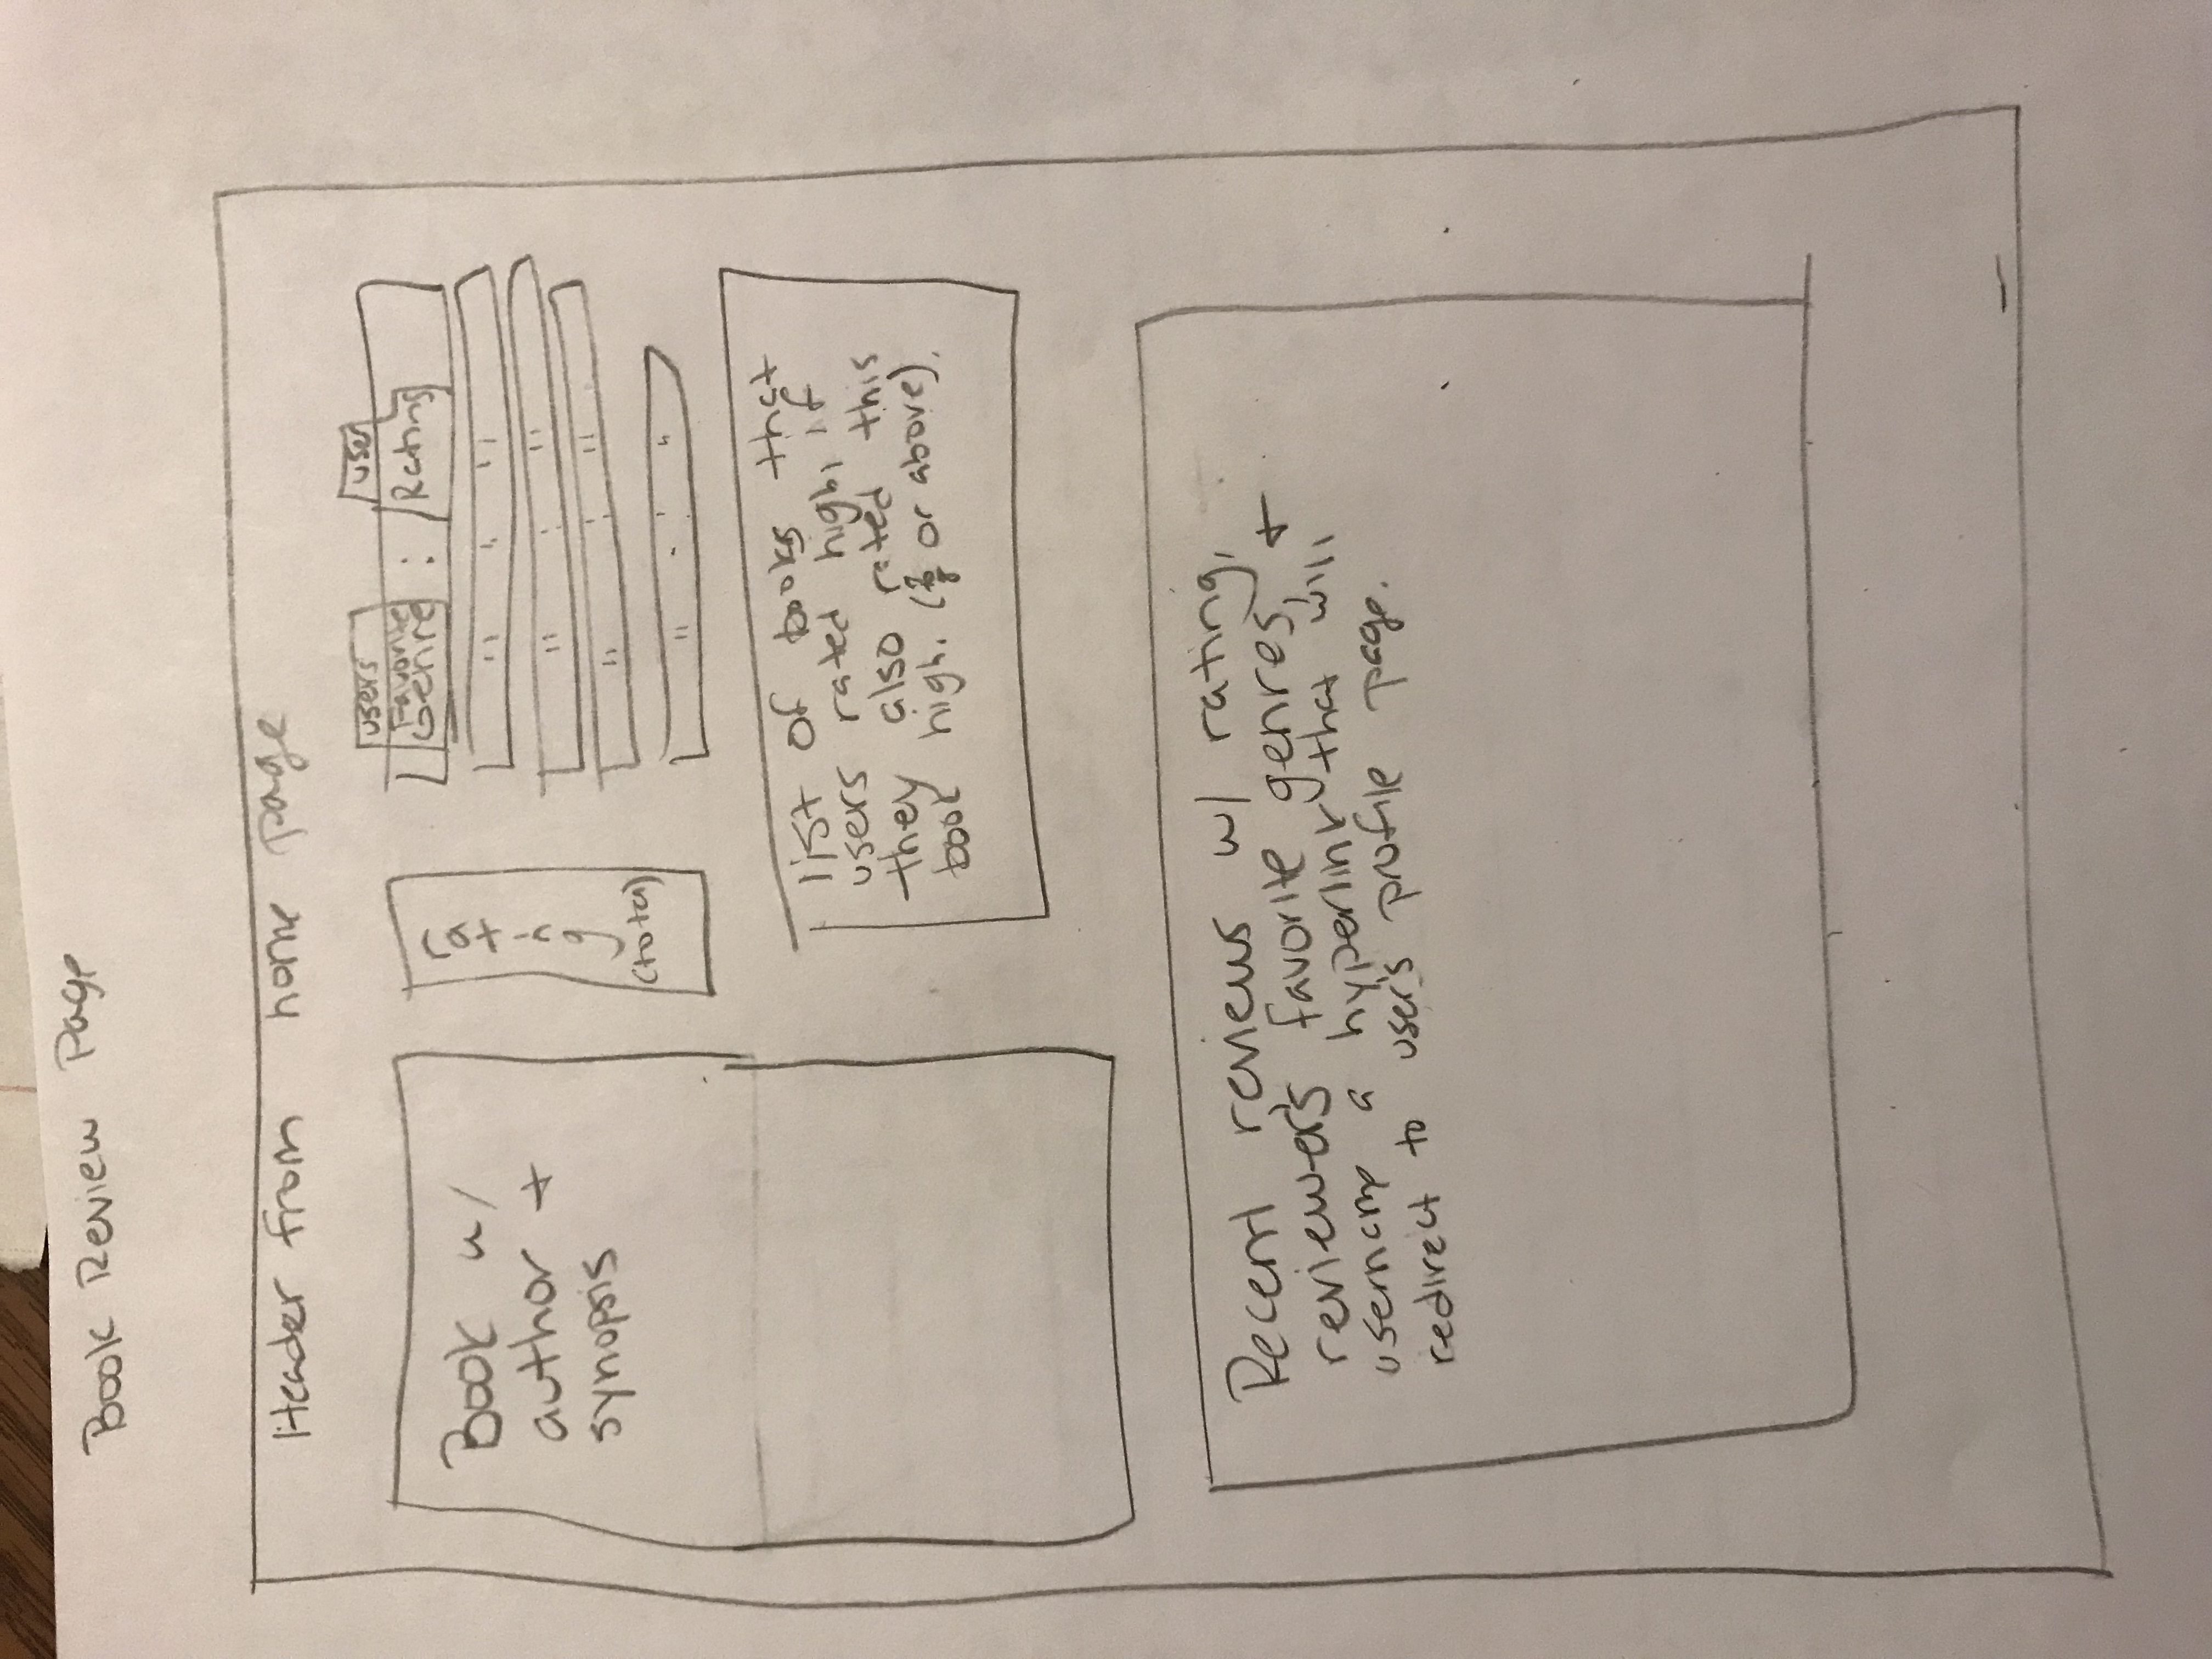 Book Review Page
Header from home page
Book w/
author +
synopsis
rating
(total)
users
Favorite
Genre
:
user
Rating
" : "
" : "
" : "
" : "
list of books that
users rated high, if
they also rated this
book high. ( or above).
Recent reviews w/ rating,
reviewer's favorite genres, +
username a hyperlink that will
redirect to user's profile page.